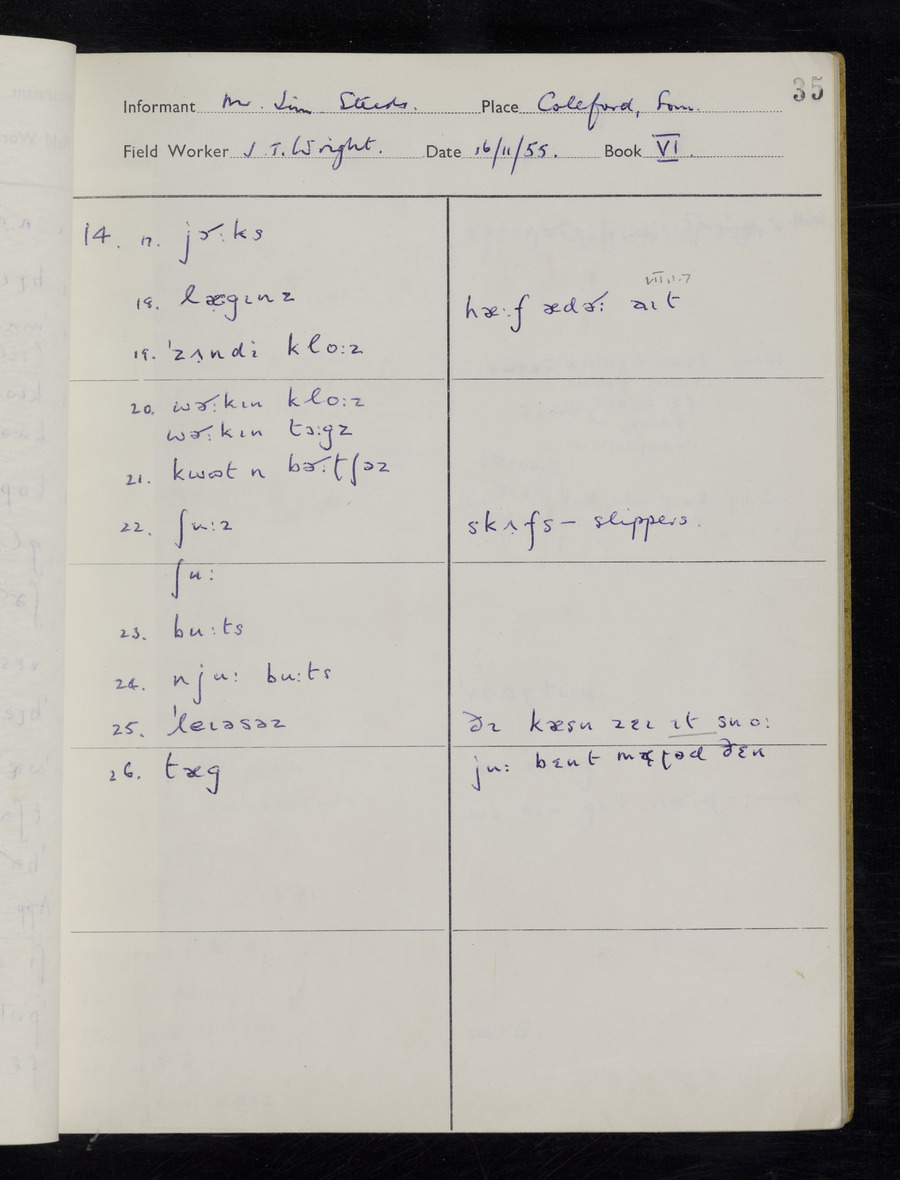 35
Informant Mr. Jim Steeds. Place Coleford, Som.
Field Worker J.T. Wright. Date 16/11/55. Book VI.
14. 17. jɚːks
18. lægɪnz
VII.1.7
hæːf ædɚː aɪt
19. 'zʌndi kloːz
20. wɚːkɪn kloːz
wɚːkɪn tɔːgz
21. kwɒt n bɚːtʃəz
22. ʃuːz
skʌfs – slippers.
ʃuː
23. buːts
24. njuː buːts
25. 'leɪəsəz
ðɪ kæsn zɛɪ ɪt snoː
26. tæg
juː bɛnt mæɽəd ðɛn